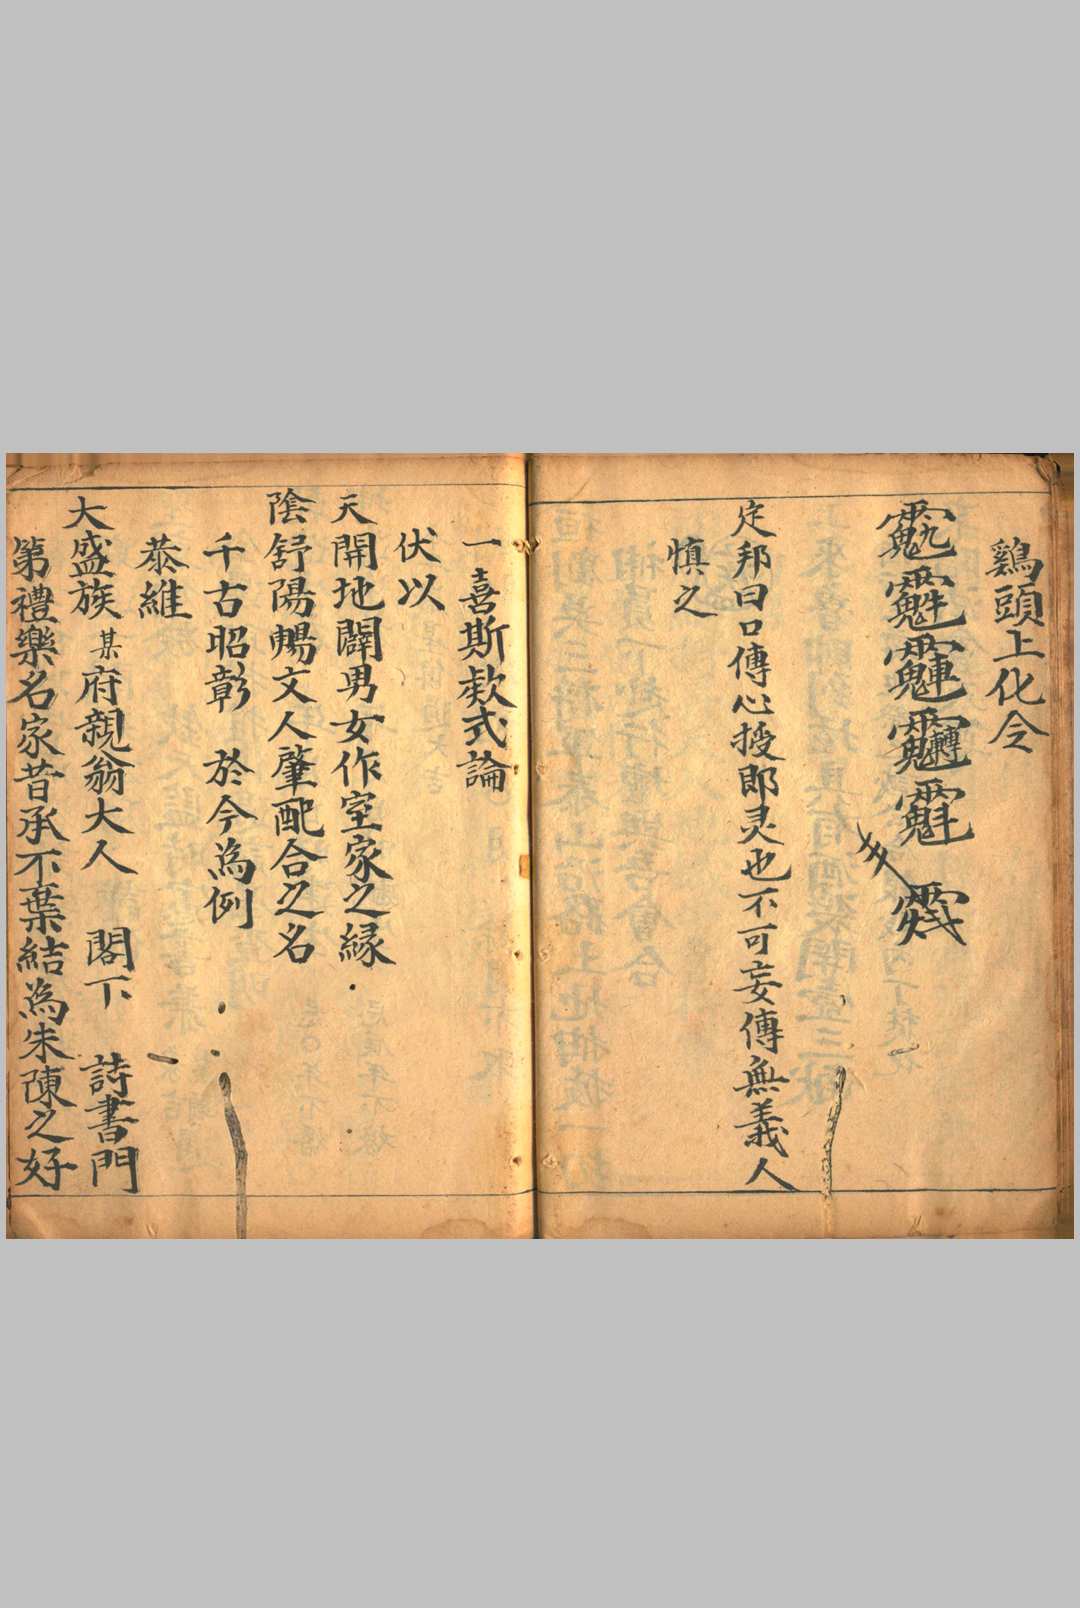 鷄頭上化令
定邦曰口傳心授即灵也不可妄傳無義人
慎之
一喜斯欵式論
伏以
天開地闢男女作室家之緣
陰舒陽暢文人肇配合之名
千古昭彰 於今為例
恭維
大盛族某府親翁大人 閣下 詩書門
第禮樂名家昔承不葉結為朱陳之好